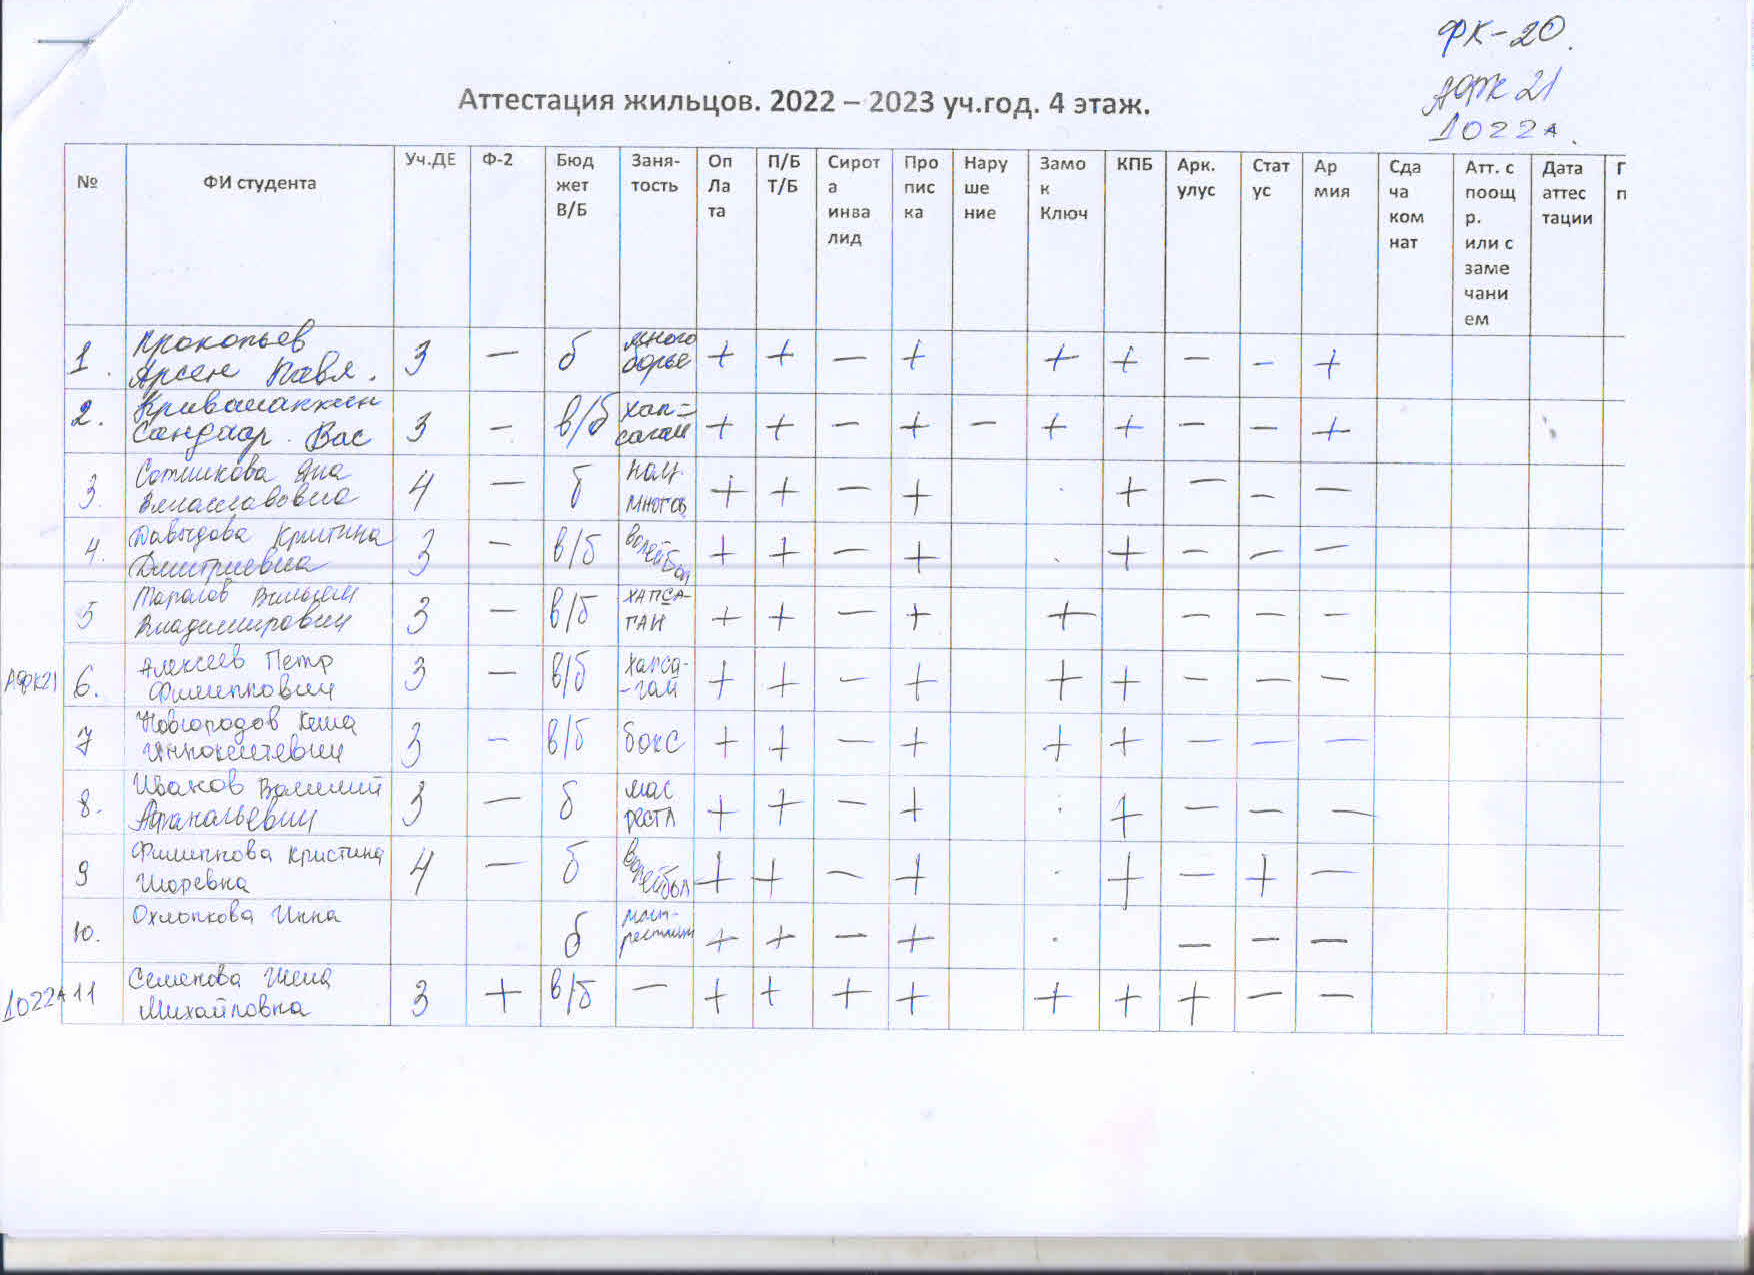 ФК-20.
АФК 21
1022А.
Аттестация жильцов. 2022 – 2023 уч.год. 4 этаж.
№ ФИ студента Уч.ДЕ Ф-2 Бюд жет В/Б Заня- тость Оп Ла та П/Б Т/Б Сирот а инва лид Про пис ка Нару ше ние Замо к Ключ КПБ Арк. улус Стат ус Ар мия Сда ча ком нат Атт. с поощ р. или с заме чани ем Дата аттес тации Г п
1. Прокопьев Арсен Павл. 3 — б много борье + + — + + + — – +
2. Сандаар Вас 3 — в/б хап= сагай + + — + — + + — — +
3. Сотникова Яна 4 — б нац. многоб + + — + + — — —
4. Давыдова Кристина Дмитриевна 3 — в/б волейбол + + — + + — — —
5 Вильям Владимирович 3 — в/б ХАПСА- ГАЙ + + — + + — — —
АФК21 6. Алексеев Петр Филиппович 3 — в/б хапса- -гай + + — + + + — — —
7 Новгородов Кеша Иннокентьевич 3 – в/б бокс + + — + + + — — —
8. Иванов Василий Афанасьевич 3 — б мас рестл + + — + + — — —
9 Филиппова Кристина Игоревна 4 — б Волейбол + + — + + — + —
10. Охлопкова Инна б мас- рестлинг + + — + — — —
1022А 11 Семенова Михайловна 3 + в/б — + + + + + + + — —